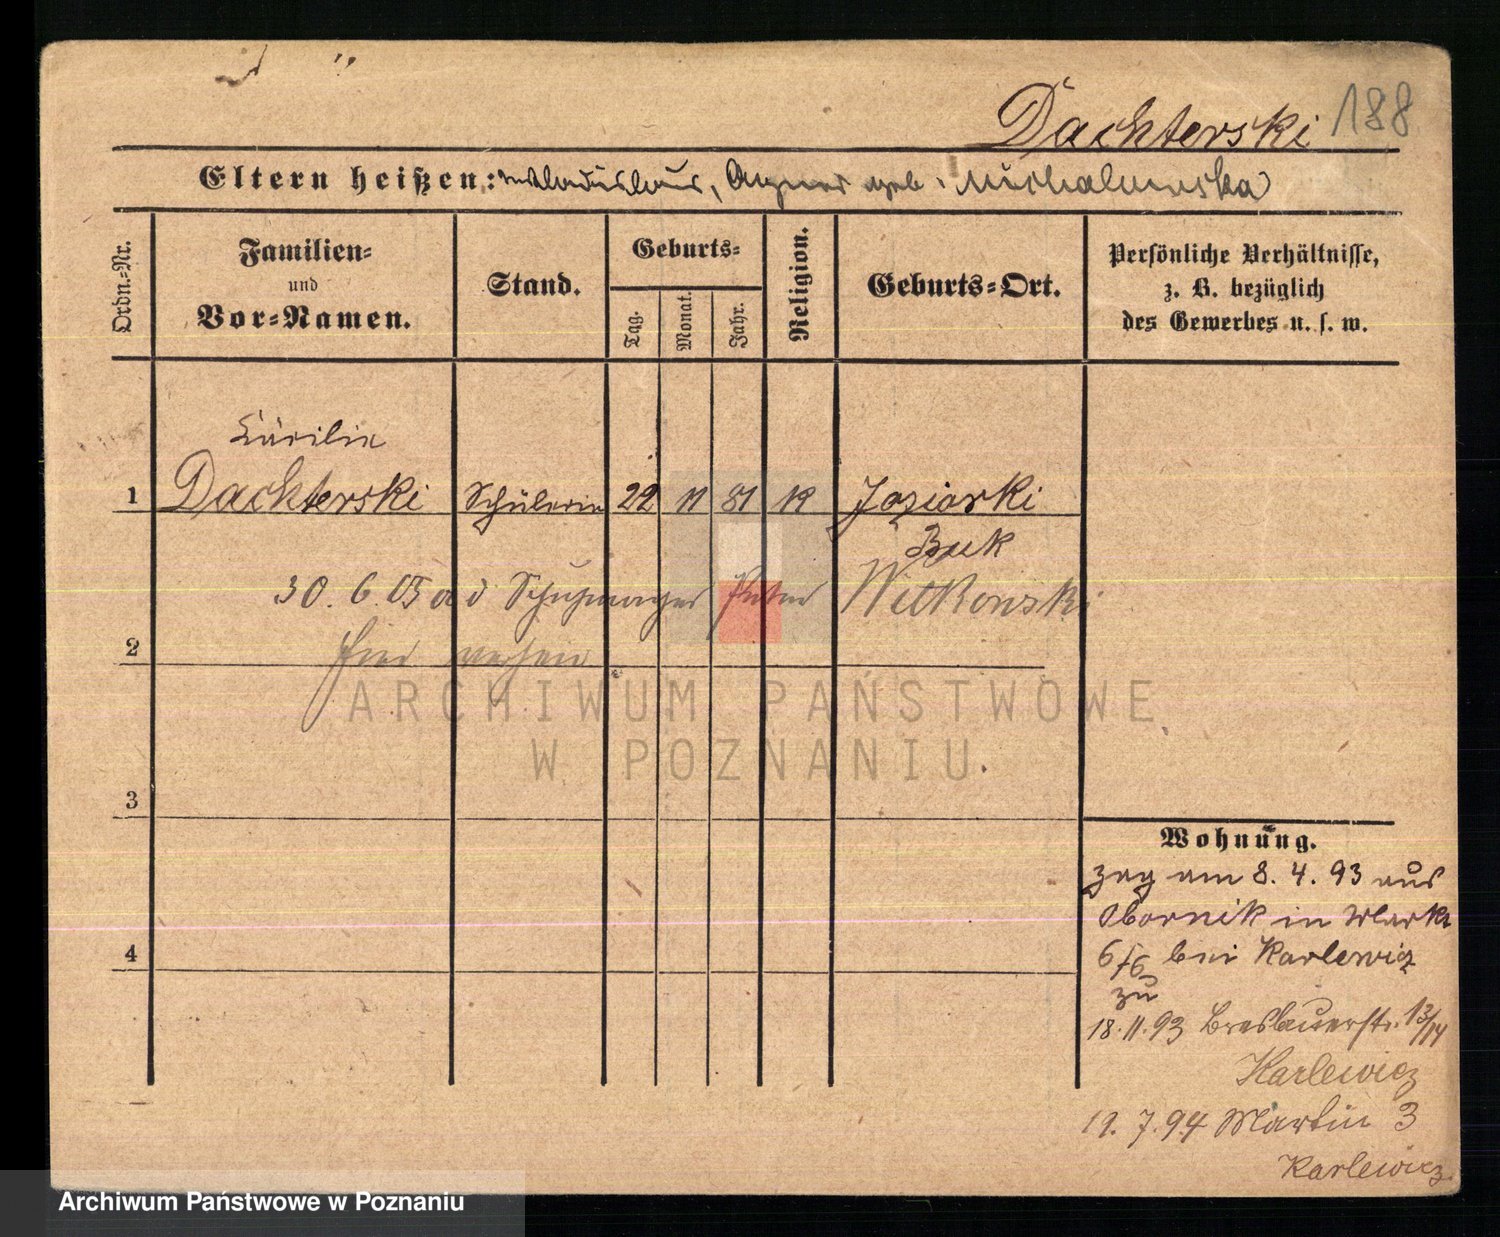 Dachterski 188
Eltern heißen: Wladislaus, Agnes geb. Michalowska
Ordn.=Nr.
Familien=
und
Vor=Namen.
Stand.
Geburts=
Tag.
Monat.
Jahr.
Religion.
Geburts=Ort.
Persönliche Verhältnisse,
z. B. bezüglich
des Gewerbes u. s. w.
Cäcilie
1 Dachterski Schülerin 22 11 81 K Joziorki
Buk
30. 6. 05 Schuhmacher Peter Witkowski
2 hier
ARCHIWUM PAŃSTWOWE
W POZNANIU
3
Wohnung.
zog am 8. 4. 93 aus
Obornik in Markt
4
6/6 bei Karlewicz
zu
18. 11. 93 Breslauerstr. 13/14
Karlewicz
19. 7. 94 Martin 3
Karlewicz
Archiwum Państwowe w Poznaniu